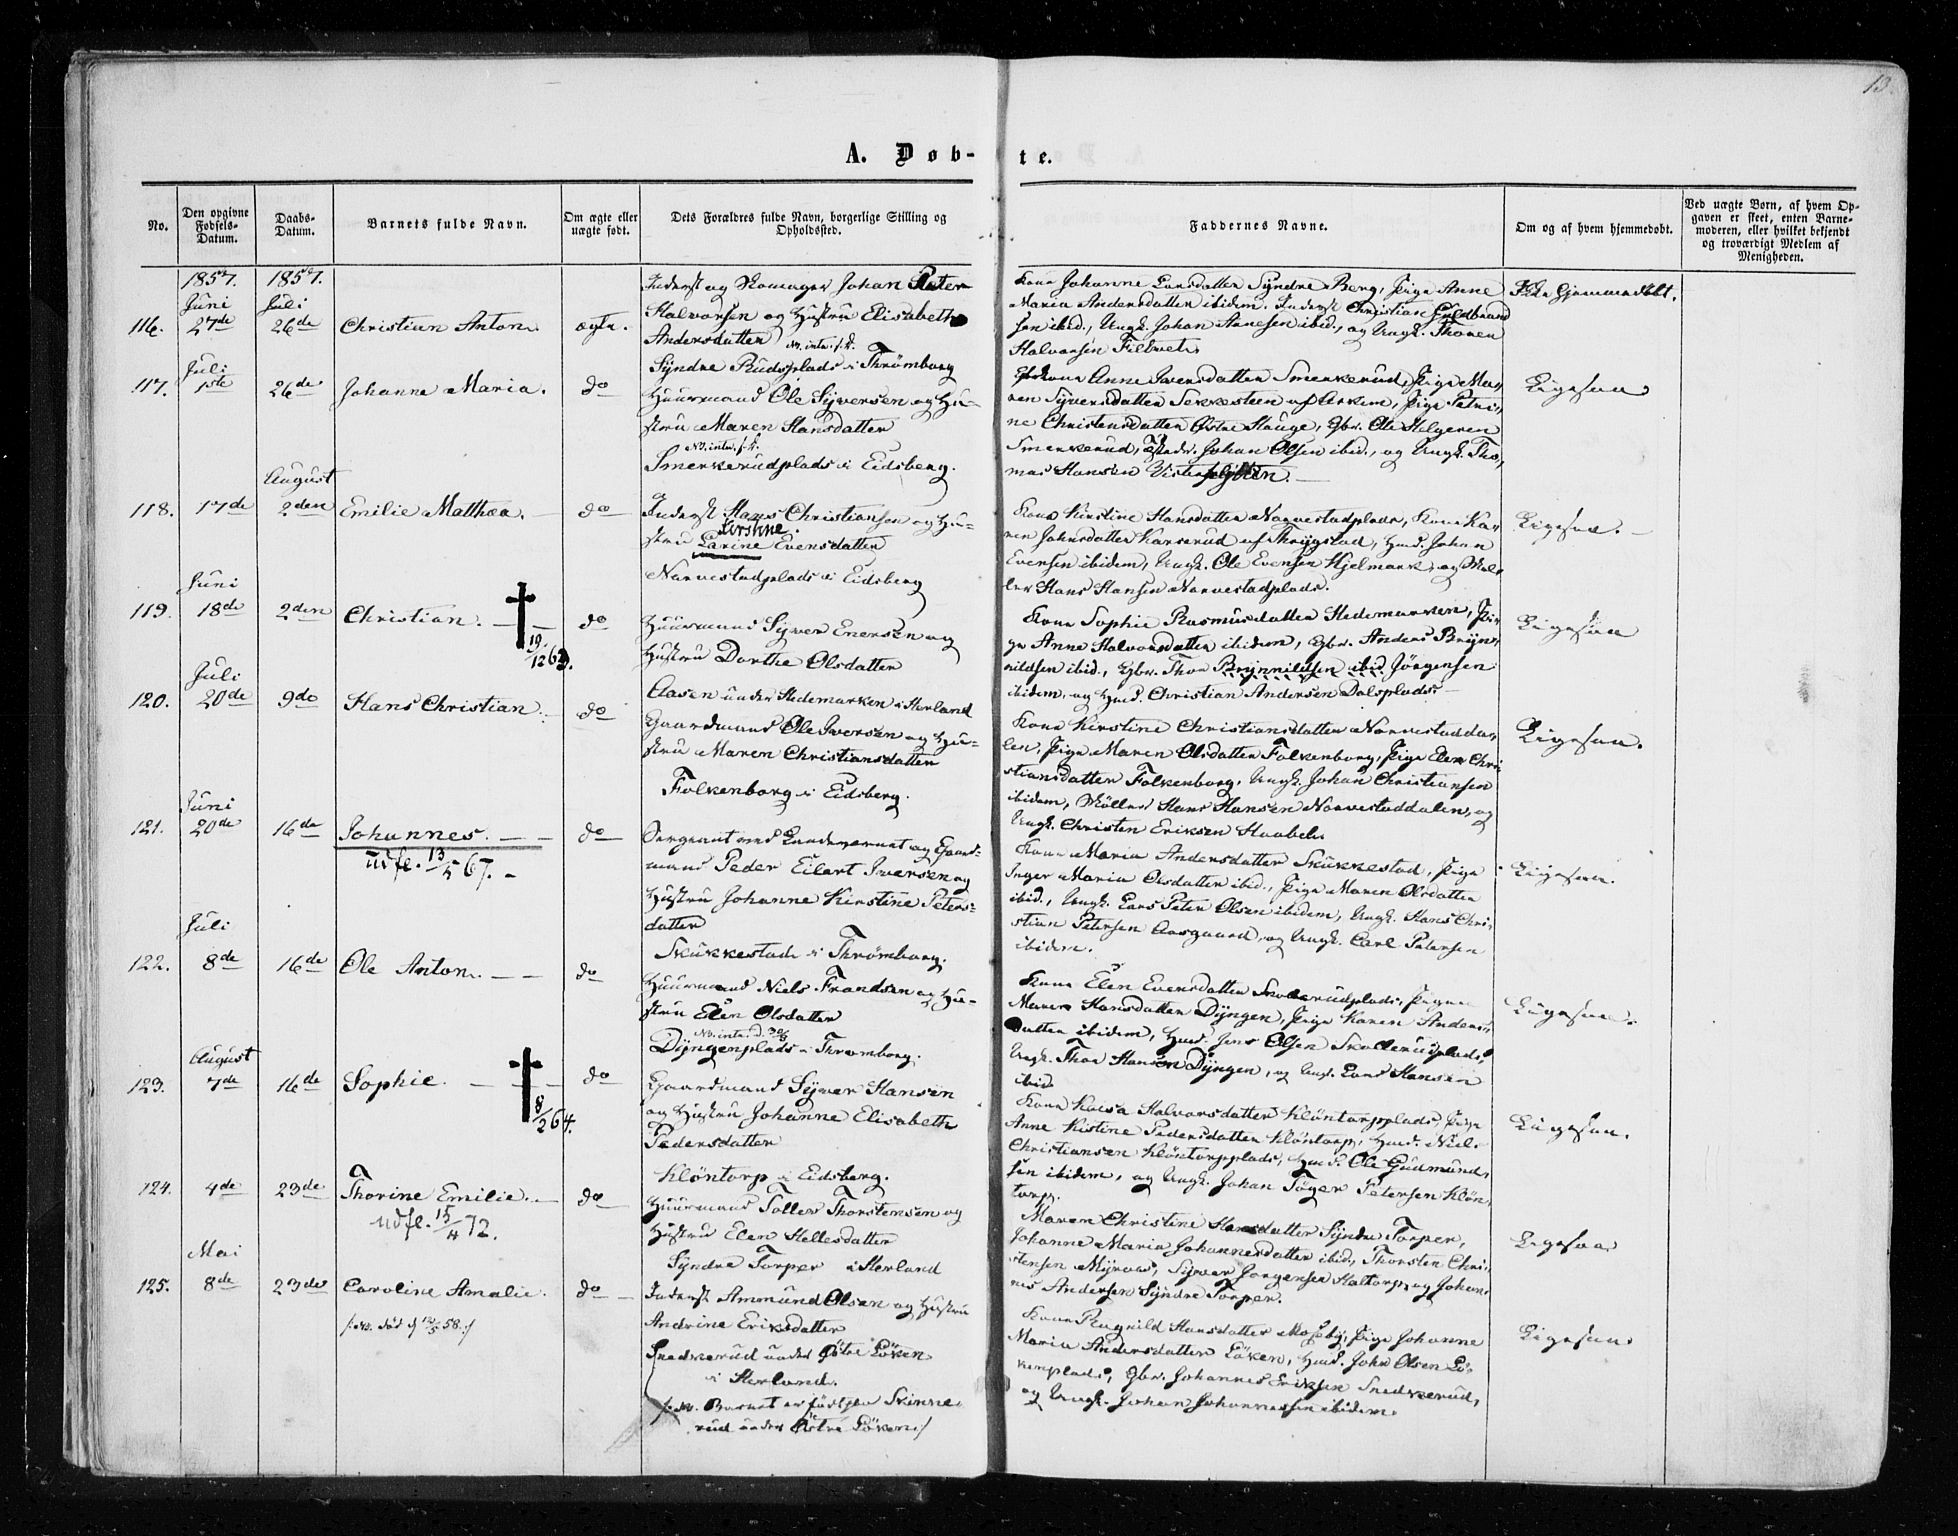 13.
A. Døb-
te.
No.
Den opgivne
Fødsels-
Datum.
Daabs-
Datum.
Barnets fulde Navn.
Om ægte eller
uægte født.
Dets Forældres fulde Navn, borgerlige Stilling og
Opholdssted.
Faddernes Navne.
Om og af hvem hjemmedøbt.
Ved uægte Børn, af hvem Op-
gaven er skeet, enten Barne-
moderen, eller hvilket bekjendt
og troværdigt Medlem af
Menigheden.
1857. 1857.
Juni Juli
116. 27de 26de Christian Anton. ægte.
Inderst og Skomager Johan Peter
Halvorsen og Hustru Elisabeth
Andersdatter
Syndre Rudsplads i Thrømborg
Kone Johanne Larsdatter Syndre Berg, Pige Anne
Maria Andersdatter ibidem, Inderst Christian Guldbrand
sen ibid., Ungk. Johan Hansen ibid., og Ungk. Thoren
Halvorsen Filtvet.
Ikke Hjemmedøbt.
Juli
117. 1ste 26de Johanne Maria. do
Huusmand Ole Syversen og Hu-
stru Maren Hansdatter
Smerkerudplads i Eidsberg.
Kone Anne Iversdatter Smerkerud, Pige Ma-
ren Syversdatter Sekkesteen af Askim, Pige Petri-
ne Christensdatter Østre Hauge, Gbr. Ole Helgesen
Smerkerud, Johan Olsen ibid., og Ungk. Tho-
mas Hansen Vister
Ligesaa
August
118. 17de 2den Emilie Matthea. do
Inderst Hans Christiansen og Hu-
Kirstine
stru Larine Evensdatter
Narvestadplads i Eidsberg
Kone Kirstine Hansdatter Narvestadplads, Kone Ka-
ren Johnsdatter Karserud af Thrygstad, Huusm. Johan
Evensen ibidem, Ungk. Ole Evensen Hjelmark, og Møl-
ler Hans Hansen Narvestadplads.
Ligesaa.
Juni
119. 18de 2den Christian. do
19/12 63.
Huusmand Syver Enersen og
Hustru Dorthe Olsdatter
Aasen under Hedemarken i Herland
Kone Sophie Rasmusdatter Hedemarken, Pi-
ge Anne Halvorsdatter ibidem, Gbr. Anders Bryn-
nildsen ibid., Gbr. Thor Brynnildsen ibid. Jørgensen
ibidem, og Huusm. Christian Andersen Dalsplads.
Ligesaa
Juli
120. 20de 9de Hans Christian. do
Gaardmand Ole Iversen og Hu-
stru Maren Christiansdatter
Folkenborg i Eidsberg.
Kone Kirstine Christiansdatter Narvestadda-
len, Pige Maren Olsdatter Folkenborg, Pige Elen Chri-
stiansdatter Folkenborg, Ungk. Johan Christiansen
ibidem, Møller Hans Hansen Narvestaddalen, og
Ungk. Christen Eriksen Haabel.
Ligesaa.
Juni
121. 20de 16de Johannes. do
udfl. 13/5 67.
Sergeant ved Landeværnet og Gaard-
mand Peder Eilert Iversen og
Hustru Johanne Kirstine Peters-
datter
Skukkestad i Thrømborg.
Kone Maria Andersdatter Skukkestad, Pige
Inger Maria Olsdatter ibid., Pige Maren Olsdatter
ibid., Ungk. Lars Peter Olsen ibidem, Ungk. Hans Chri-
stian Petersen Aasgaard, og Ungk. Carl Petersen
ibidem.
Ligesaa.
Juli
122. 8de 16de Ole Anton. do
Huusmand Niels Frandsen og Hu-
stru Elen Olsdatter
Dyngenplads i Thrømborg.
Kone Elen Evensdatter Skollerudplads, Pigen
Maren Hansdatter Dyngen, Pige Karen Anders-
datter ibidem, Huusm. Jens Olsen Skollerudplads,
Ungk. Thor Hansen Dyngen, og Ungk. Lars Hansen
ibid.
Ligesaa.
August
123. 7de 16de Sophie. do
8/2 64.
Gaardmand Syver Hansen
og Hustru Johanne Elisabeth
Pedersdatter
Kløntorp i Eidsberg.
Kone Halvorsdatter Kløntorpplads, Pige
Anne Kistine Pedersdatter Kløntorp, Huusm. Niels
Christiansen Kløntorpplads, Huusm. Ole Gudmund-
sen ibidem, og Ungk. Johan Petersen Kløn-
torp.
Ligesaa.
124. 4de 23de Thorine Emilie. do
udfl. 15/4 72.
Huusmand Toller Thorstensen og
Hustru Elen Hellesdatter
Syndre Torper i Herland
Maren Christine Hansdatter Syndre Torper,
Johanne Maria Johannesdatter ibid., Thorsten Chri-
stensen Myrvold, Syver Jørgensen Haltorp, og Johan-
nes Andersen Syndre Torper.
Ligesaa
Mai
125. 8de 23de Caroline Amalie. do
Inderst Ammund Olsen og Hustru
Andrine Eriksdatter
Snedkerud under Østre Løken
i Herland.
Barnet er født paa Skinne-
rud under Østre Løken
Kone Ragnild Hansdatter Moseby, Pige Johanne
Maria Andersdatter Løken, Huusm. John Olsen Lø-
kenplads, Gbr. Johannes Eriksen Snedkerud,
og Ungk. Johan Johannessen ibidem.
Ligesaa.